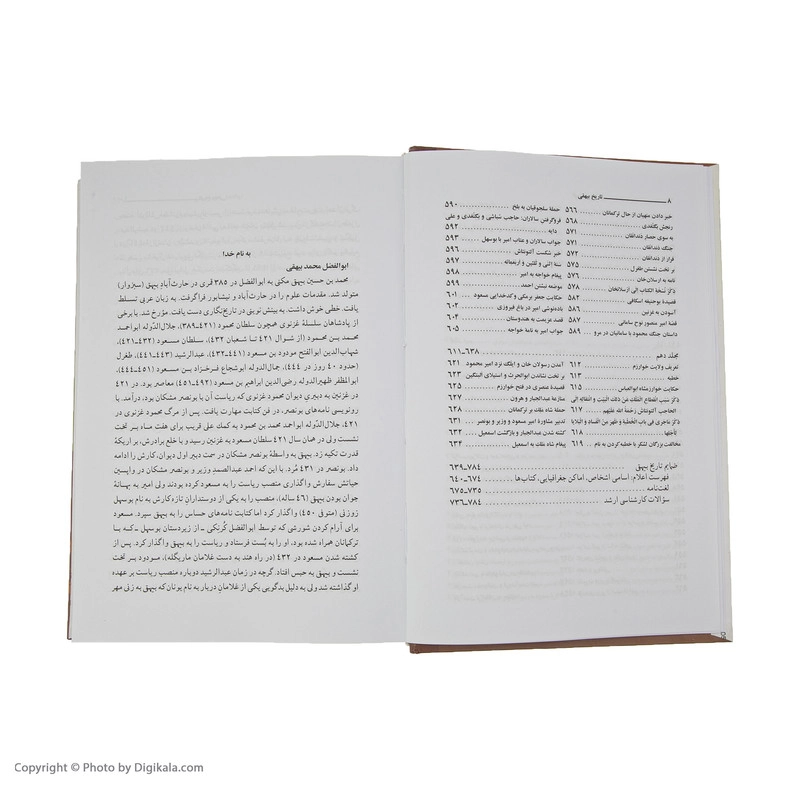 ۸ تاریخ بیهقی
خبر دادن منهیان از حال ترکمانان ۵۶۶
رنجش بکتغدی ۵۶۸
به سوی حصار دندانقان ۵۷۱
جنگ دندانقان ۵۷۱
فرار از دندانقان ۵۷۲
بر تخت نشستن طغرل ۵۷۵
نامه به ارسلان‌خان ۵۷۶
ذکر نسخة الکتاب الی ارسلانخان ۵۷۸
قصیدهٔ بوحنیفه اسکافی ۵۸۳
آسودن به غزنین ۵۸۶
قصهٔ امیر منصور نوح سامانی ۵۸۷
داستان جنگ محمود با سامانیان در مرو ۵۸۹
حملهٔ سلجوقیان به بلخ ۵۹۰
فروگرفتن سالاران: حاجب شباشی و بکتغدی و علی
دایه ۵۹۲
جواب سالاران و عتاب امیر با بوسهل ۵۹۳
خبر شکست آلتونتاش ۵۹۶
سنه اثنی و ثلثین و اربعمائه ۵۹۷
نامه خواجه به امیر ۵۹۸
موضعه نبشتن احمد ۵۹۹
حکایت جعفر برمکی و کدخدایی مسعود ۶۰۱
باده‌نوشی امیر در باغ فیروزی ۶۰۲
قصد عزیمت به هندوستان ۶۰۴
جواب امیر به نامهٔ خواجه ۶۰۵
مجلد دهم ۶۱۱-۶۳۸
تعریف ولایت خوارزم ۶۱۲
خطبه ۶۱۳
حکایت خوارزمشاه ابوالعباس ۶۱۵
ذکر سبب انقطاع الملک عن ذلک البیت و انتقاله الی
الحاجب آلتونتاش رحمة الله علیهم ۶۱۷
ذکر ماجری فی باب الخطبة و ظهر من الفساد و البلایا
لأجلها ۶۱۸
مخالفت بزرگان لشکر با خطبه کردن به نام ۶۱۹
آمدن رسولان خان و ایلک نزد امیر محمود ۶۲۱
بر تخت نشاندن ابوالحرث و استیلای البتگین ۶۲۳
قصیدهٔ عنصری در فتح خوارزم ۶۲۵
منازعهٔ عبدالجبار و هرون ۶۲۷
حملهٔ شاه ملک بر ترکمانان ۶۲۸
تدبیر مشاورهٔ امیر مسعود و وزیر و بونصر ۶۳۱
کشته شدن عبدالجبار و بازگشت اسمعیل ۶۳۲
پیغام شاه ملک به اسمعیل ۶۳۲
ضمایم تاریخ بیهق ۶۳۹-۷۸۴
فهرست اعلام: اسامی اشخاص، اماکن جغرافیایی، کتاب‌ها ۶۴۰-۶۷۴
لغت‌نامه ۶۷۵-۷۳۵
سؤالات کارشناسی ارشد ۷۳۶-۷۸۴
به نام خدا!
ابوالفضل محمد بیهقی
محمد بن حسین بیهق مکنّی به ابوالفضل در ۳۸۵ قمری در حارث‌آبادِ بیهق (سبزوار)
متولد شد. مقدمات علوم را در حارث‌آباد و نیشابور فراگرفت. به زبان عربی تسلط
یافت. خطی خوش داشت. به بینش نوینی در تاریخ‌نگاری دست یافت. مؤرخ شد. با برخی
از پادشاهان سلسلهٔ غزنوی همچون سلطان محمود (۳۸۹-۴۲۱)، جلال‌الدّوله ابواحمد
محمد بن محمود (از شوال ۴۲۱ تا شعبان ۴۲۱)، سلطان مسعود (۴۲۱-۴۳۲)،
شهاب‌الدین ابوالفتح مودود بن مسعود (۴۳۲-۴۴۱)، عبدالرشید (۴۴۱-۴۴۳)، طغرل
(حدود ۴۰ روز در ۴۴۴)، جمال‌الدوله ابوشجاع فرخ‌زاد بن مسعود (۴۴۴-۴۵۱)،
ابوالمظفر ظهیرالدوله رضی‌الدین ابراهیم بن مسعود (۴۵۱-۴۹۲) معاصر بود. در ۴۲۱
در غزنین به دبیری دیوان محمود غزنوی که ریاست آن با بونصر مشکان بود، درآمد. با
رونویسی نامه‌های بونصر، در فن کتابت مهارت یافت. پس از مرگ محمود غزنوی در
۴۲۱، جلال‌الدّوله ابواحمد محمد بن محمود به کمک علی قریب برای هفت ماه بر تخت
نشست ولی در همان سال ۴۲۱ سلطان مسعود به غزنین رسید و با خلع برادرش، بر اریکهٔ
قدرت تکیه زد. بیهق به واسطهٔ بونصر مشکان در سمت دبیر اول دیوان، کارش را ادامه
داد. بونصر در ۴۳۱ مُرد. با این که احمد عبدالصمدِ وزیر و بونصر مشکان در واپسین
حیاتش سفارش واگذاری منصب را به بیهق به مسعود کرده بودند ولی امیر به بهانهٔ
جوان بودن بیهق (۴۶ ساله)، منصب را به یکی از دوستداران تازه‌کارش به نام بوسهل
زوزنی (متوفی ۴۵۰) واگذار کرد اما کتابت نامه‌های حساس را به بیهق سپرد. مسعود
برای آرام کردن شورشی که توسط ابوالفضل کُرنکی ـ از زیردستان بوسهل ـ که با
ترکمانان همراه شده بود، او را به بُست فرستاد و ریاست را به بیهق واگذار کرد. پس از
کشته شدن مسعود در ۴۳۲ (در راه هند به دست غلامان ماریگله)، مودود بر تخت
نشست و بیهق به حبس افتاد. گرچه در زمان عبدالرشید دوباره منصب ریاست بر عهده
او گذاشته شد ولی به دلیل بدگویی یکی از غلامان دربار به نام یونان که بیهق به زنی مهر
Copyright © Photo by Digikala.com